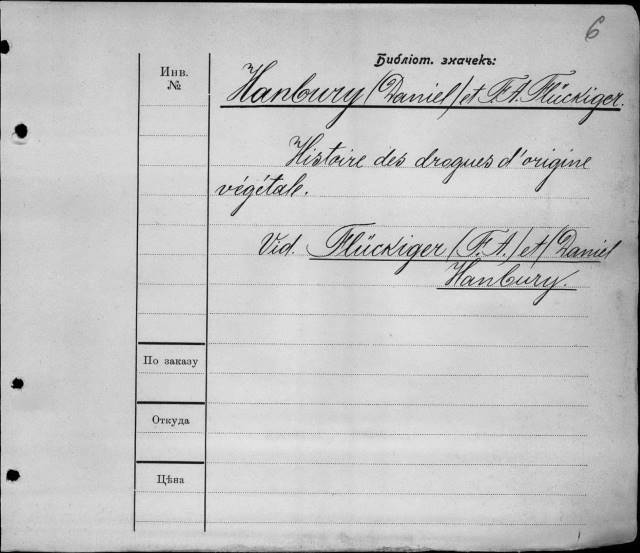 6
Библіот. значекъ:
Инв.
№
Hanbury (Daniel) et F. A. Flückiger.
Histoire des drogues d'origine
végétale.
Vid. Flückiger (F. A.) et (Daniel
Hanbury.
По заказу
Откуда
Цѣна